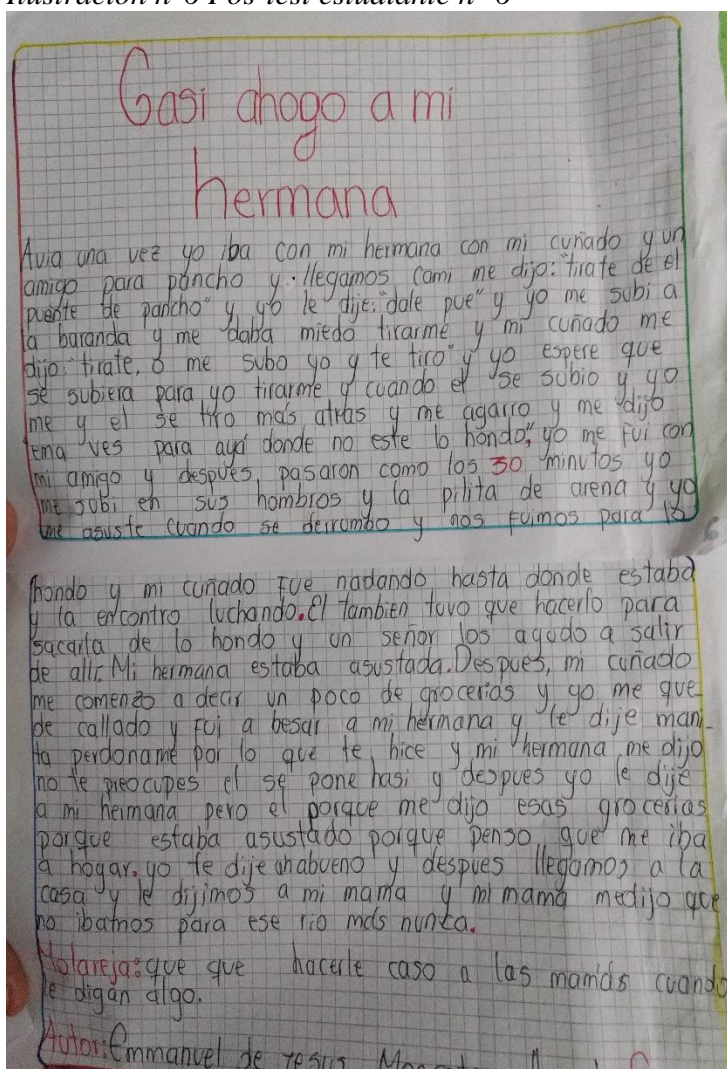 Ilustración n°8 Pos-test estudiante n° 8
Gasi ahogo a mi
hermana
Avia una vez yo iba con mi hermana con mi cuñado y un
amigo para pancho y llegamos cami me dijo: "tirate de el
puente de pancho" y yo le dije: "dale pue" y yo me subi a
la baranda y me daba miedo tirarme y mi cuñado me
dijo: tirate, o me subo yo y te tiro" y yo espere que
se subiera para yo tirarme y cuando el se subio y yo
me y el se tiro más atras y me agarro y me dijo
ema ves para ayá donde no este lo hondo", yo me fui con
mi amigo y despues, pasaron como los 30 minutos yo
me subi en sus hombros y la pilita de arena y yo
me asuste cuando se derrumbo y nos fuimos para lo
hondo y mi cuñado fue nadando hasta donde estaba
y la encontro luchando. El tambien tuvo que hacerlo para
sacarla de lo hondo y un señor los agudo a salir
de allí. Mi hermana estaba asustada. Despues, mi cuñado
me comenzo a decir un poco de grocerias y yo me que-
de callado y fui a besar a mi hermana y le dije mani-
ta perdoname por lo que te hice y mi hermana me dijo
no te preocupes el se pone hasi y despues yo le dije
a mi hermana pero el porque me dijo esas grocerias
porque estaba asustado porque penso que me iba
a hogar. yo te dije ahabueno y despues llegamos a la
casa y le dijimos a mi mamá y mi mamá medijo que
no ibamos para ese rio más nunca.
Molareja: que que hacerle caso a las mamás cuando
le digan algo.
Autor: Emmanuel de jesus